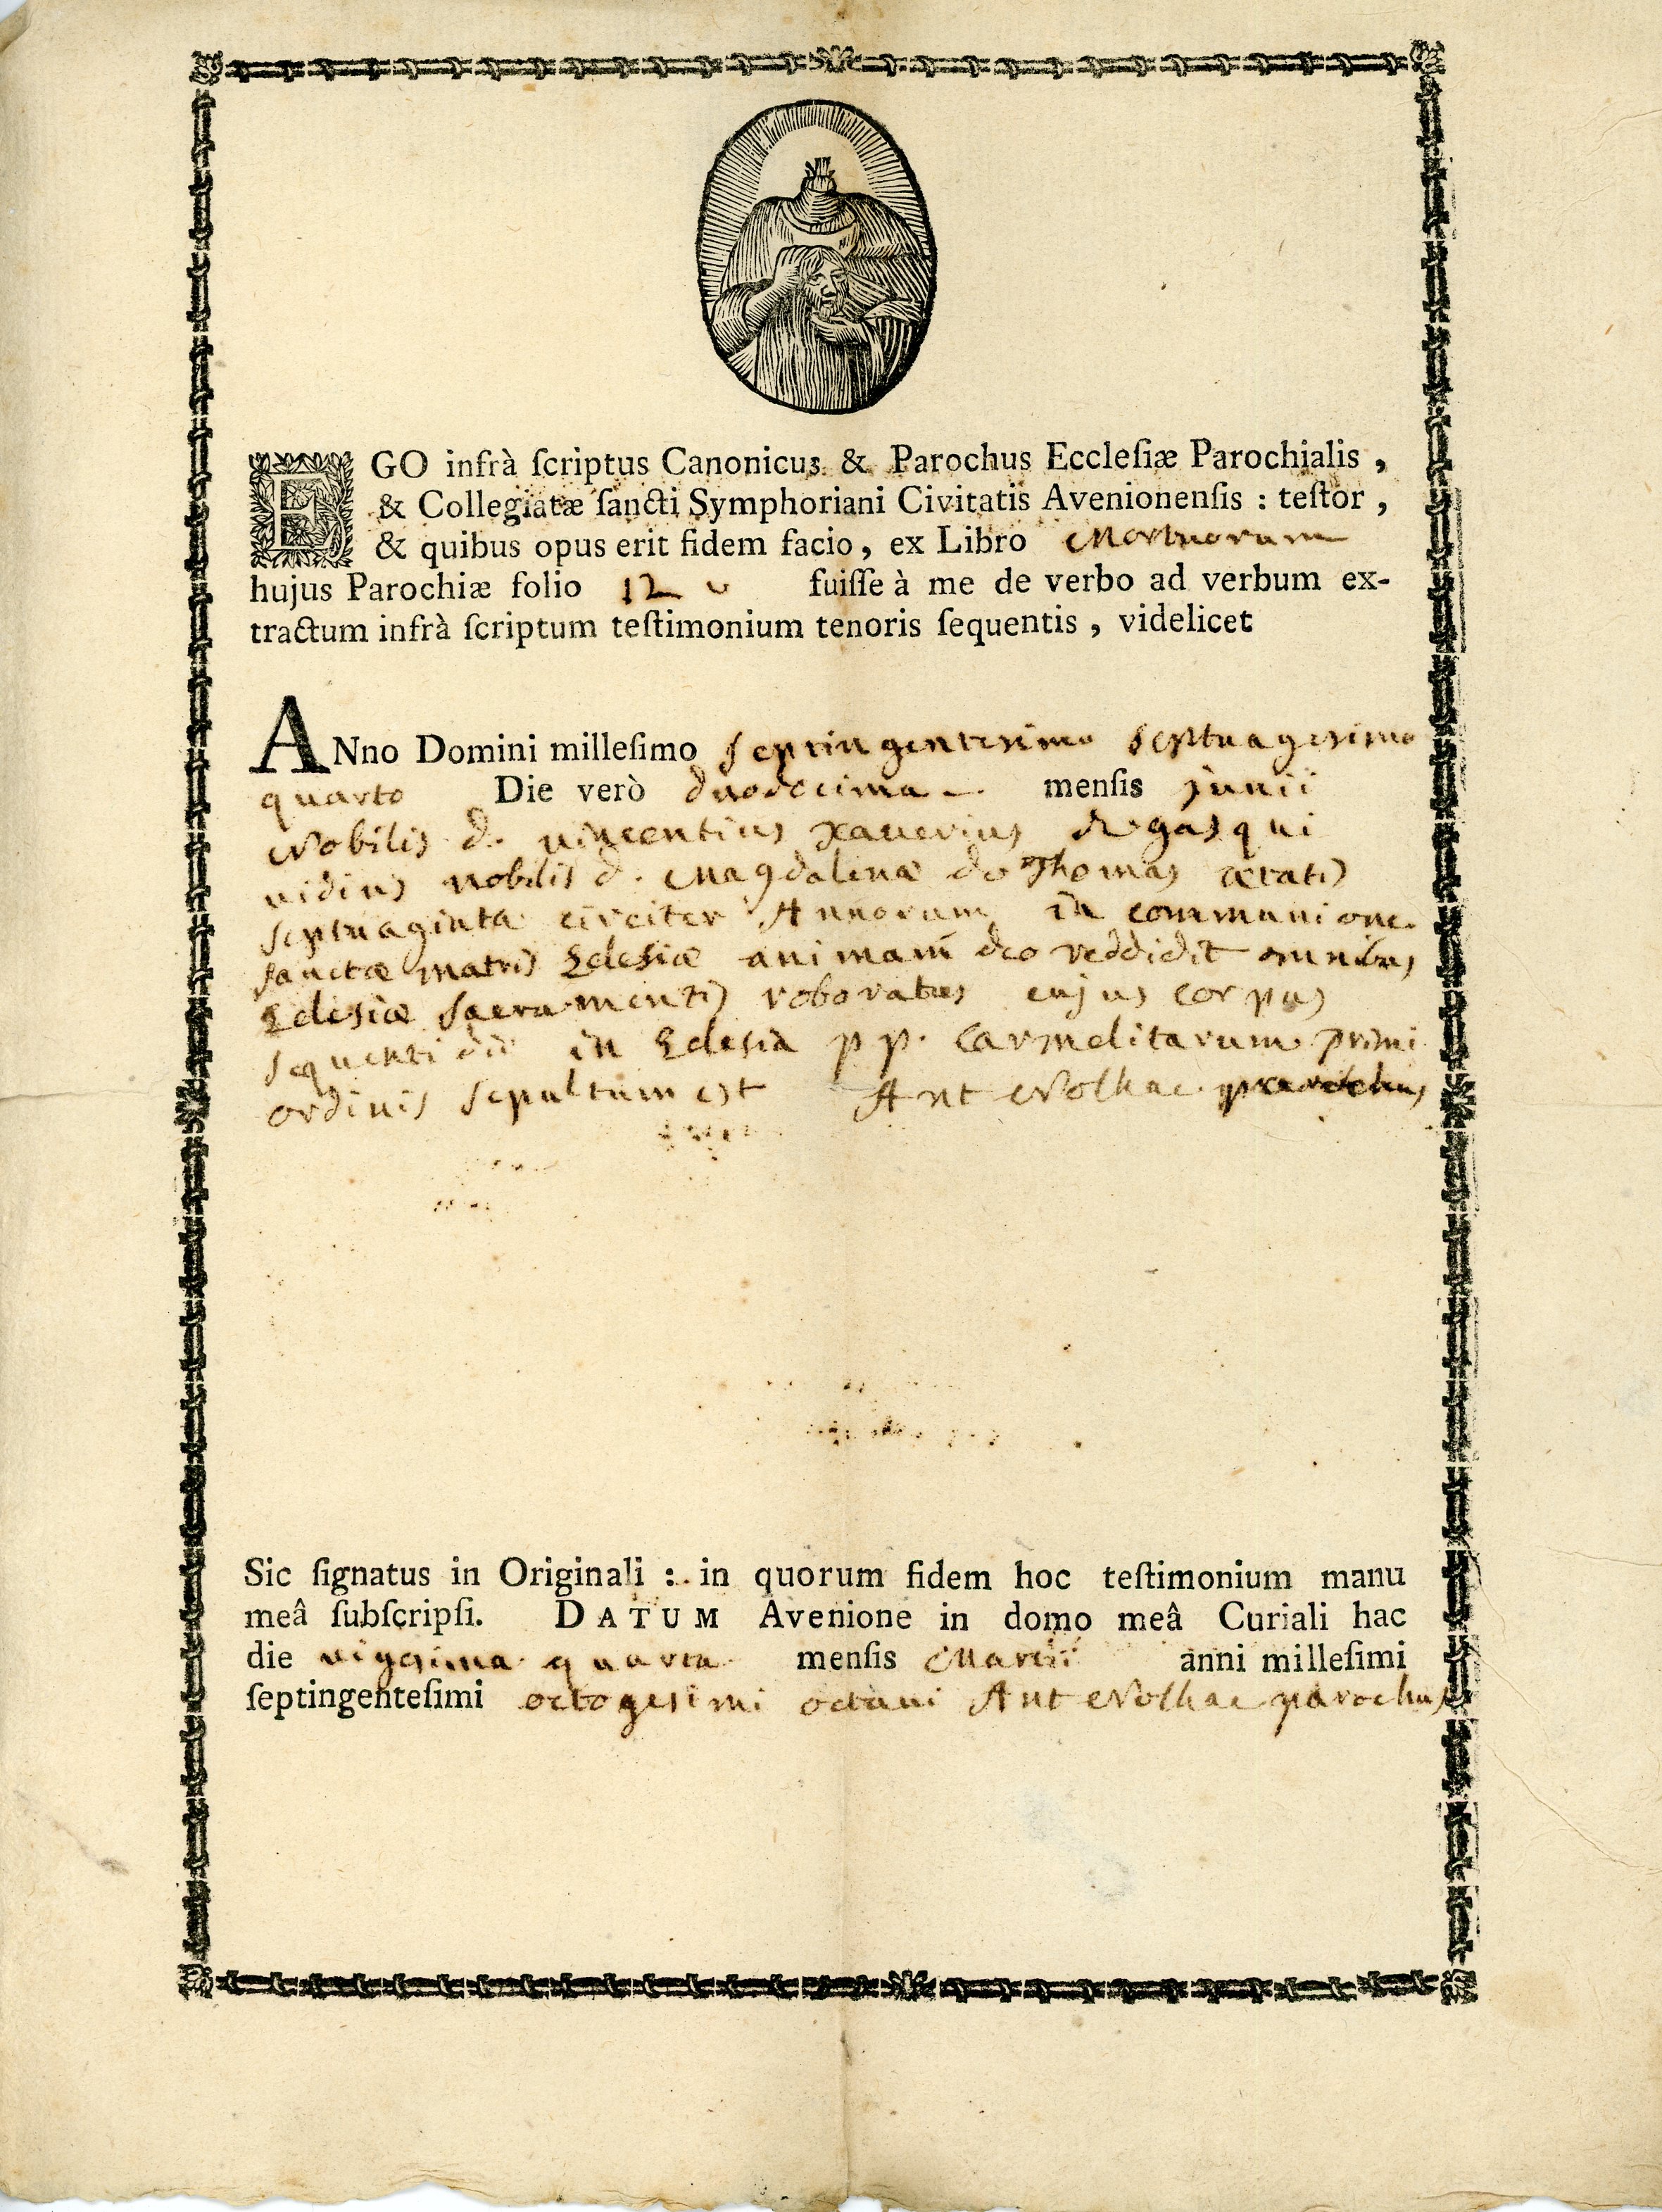 EGO infrà ſcriptus Canonicus & Parochus Eccleſiæ Parochialis ,
& Collegiatæ ſancti Symphoriani Civitatis Avenionenſis : teſtor ,
& quibus opus erit fidem facio, ex Libro Mortuorum
hujus Parochiæ folio 12 v fuiſſe à me de verbo ad verbum ex-
tractum infrà ſcriptum teſtimonium tenoris ſequentis , videlicet
ANno Domini milleſimo septingentesimo septuagesimo
quarto Die verò duodecima menſis junii
Nobilis d. vincentius xaverius de gasqui
vidius nobilis d. Magdalenæ de Thomas ætatis
septuaginta circiter Annorum in communione
sanctæ matris Eclesiæ animam deo reddidit omnibus
Eclesiæ sacramentis roboratus cujus corpus
sequenti die in Eclesia pp. Carmelitarum primi
ordinis sepultum est Ant Nolhac parochus
Sic ſignatus in Originali : in quorum fidem hoc teſtimonium manu
meâ ſubſcripſi. DATUM Avenione in domo meâ Curiali hac
die vigesima quarta menſis Martii anni milleſimi
ſeptingenteſimi octogesimi octavi Ant Nolhac parochus